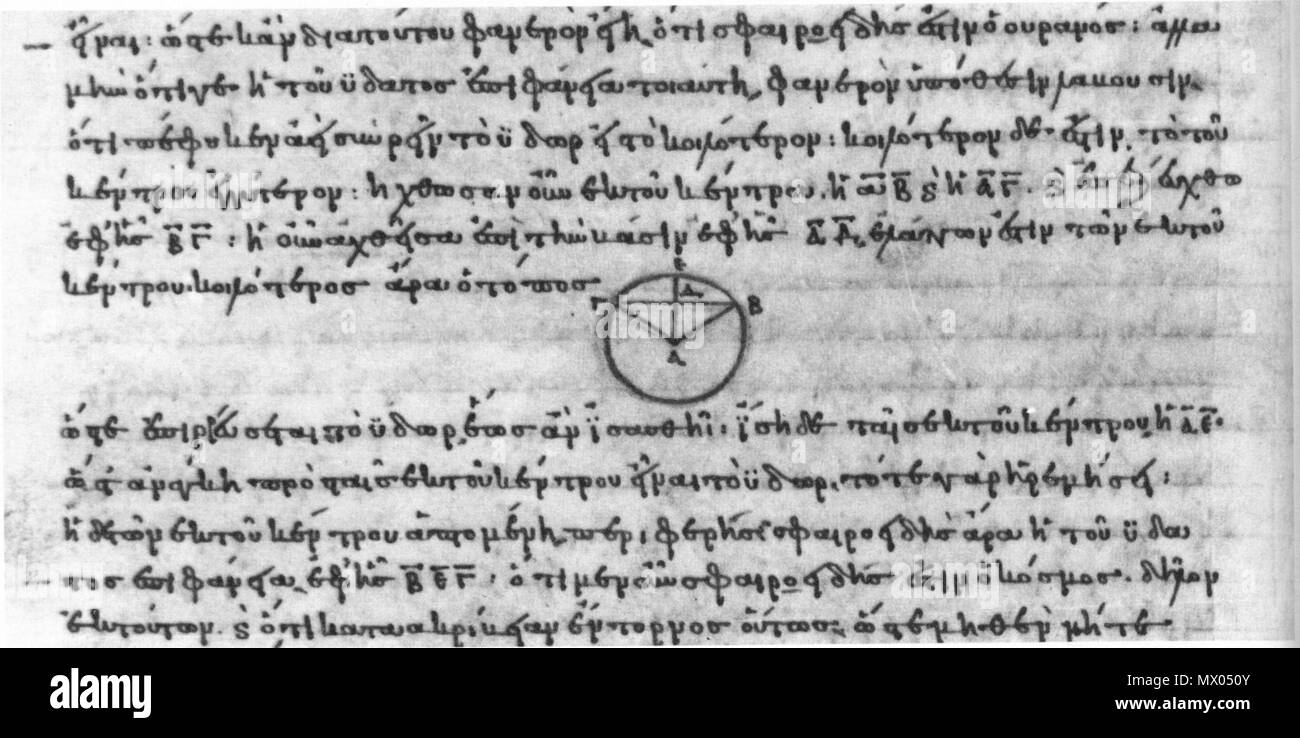 εἶναι: ὥστε κἂν διὰ τούτου φανερὸν εἴη, ὅτι σφαιροειδής ἐστιν ὁ οὐρανός: ἀλλὰ
μὴν ὅτι γε ἡ τοῦ ὕδατος ἐπιφάνεια τοιαύτη, φανερὸν ὑπόθεσιν λαβοῦσιν
ὅτι πέφυκεν ἀεὶ συρρεῖν τὸ ὕδωρ εἰς τὸ κοιλότερον: κοιλότερον δέ ἐστιν τὸ τοῦ
κέντρου ἐγγύτερον: ἤχθωσαν οὖν ἐκ τοῦ κέντρου ἡ ΑΒ καὶ ἡ ΑΓ καὶ ἐπεζεύχθω
ἐφ' ἧς ΒΓ: ἡ οὖν ἀχθεῖσα ἐπὶ τὴν βάσιν ἐφ' ἧς ΑΔ, ἐλάττων ἐστὶν τῶν ἐκ τοῦ
κέντρου. κοιλότερος ἄρα ὁ τόπος
Ε
Γ Δ Β
Α
ὥστε περιρρεύσεται τὸ ὕδωρ, ἕως ἂν ἰσασθῇ: ἴση δὲ ταῖς ἐκ τοῦ κέντρου ἡ ΑΕ.
ὥστ' ἀνάγκη πρὸς ταῖς ἐκ τοῦ κέντρου εἶναι τὸ ὕδωρ, τότε γὰρ ἠρεμήσει:
ἡ δὲ τῶν ἐκ τοῦ κέντρου ἁπτομένη, περιφερής: σφαιροειδὴς ἄρα ἡ τοῦ ὕδα
τος ἐπιφάνεια, ἐφ' ἧς ΒΕΓ: ὅτι μὲν οὖν σφαιροειδής ἐστιν ὁ κόσμος, δῆλον
ἐκ τούτων. καὶ ὅτι κατὰ ἀκρίβειαν ἔντορνος οὕτως, ὥστε μηθὲν μήτε
alamy
Image ID: MX050Y
www.alamy.com